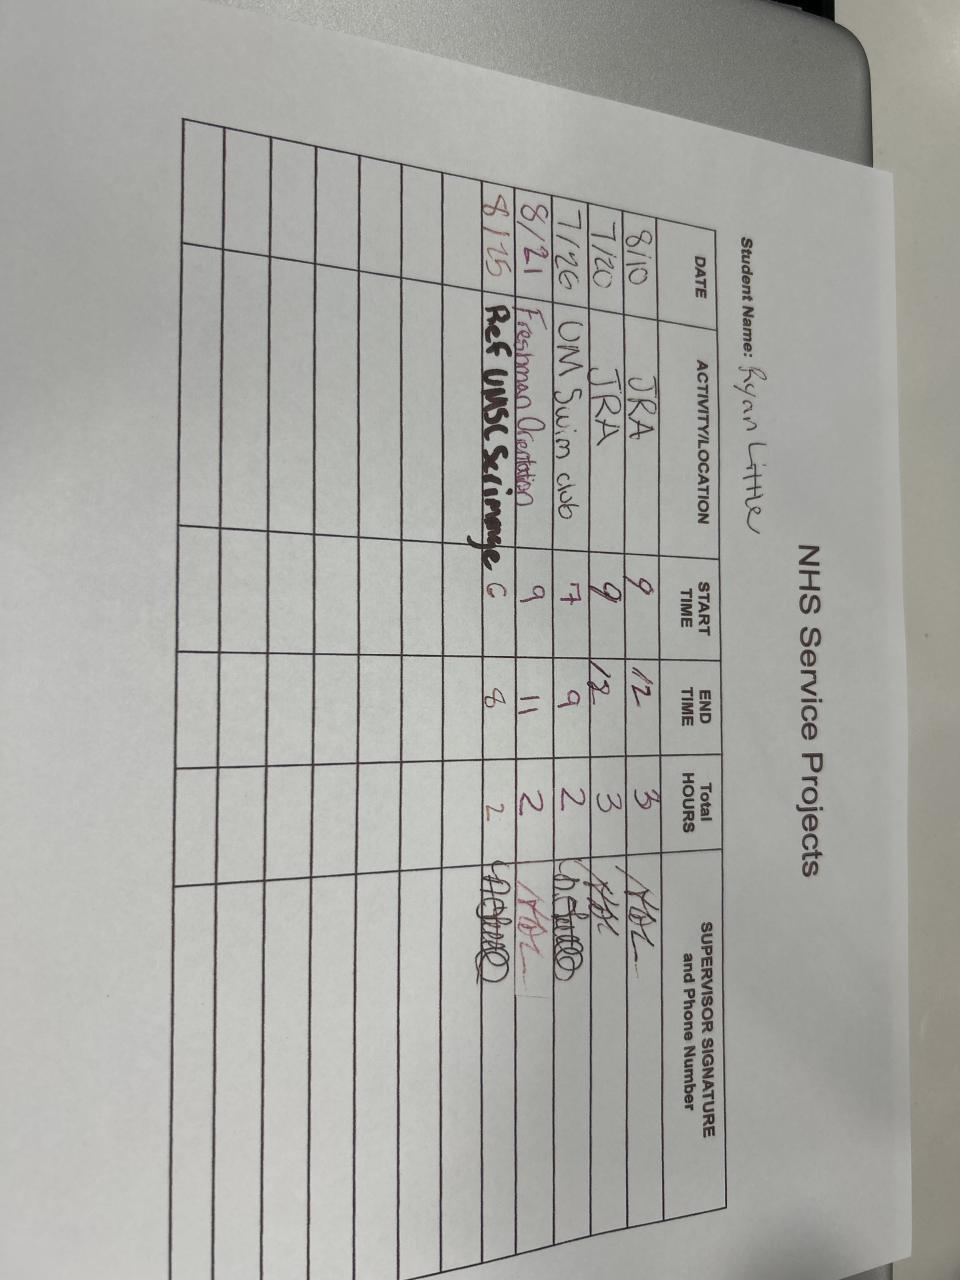 NHS Service Projects
Student Name: Ryan Little
DATE ACTIVITY/LOCATION START TIME END TIME Total HOURS SUPERVISOR SIGNATURE and Phone Number
8/10 JRA 9 12 3
7/20 JRA 9 12 3
7/26 UM Swim club 7 9 2
8/21 Freshman Orientation 9 11 2
8/25 Ref UMSC Scrimage 6 8 2